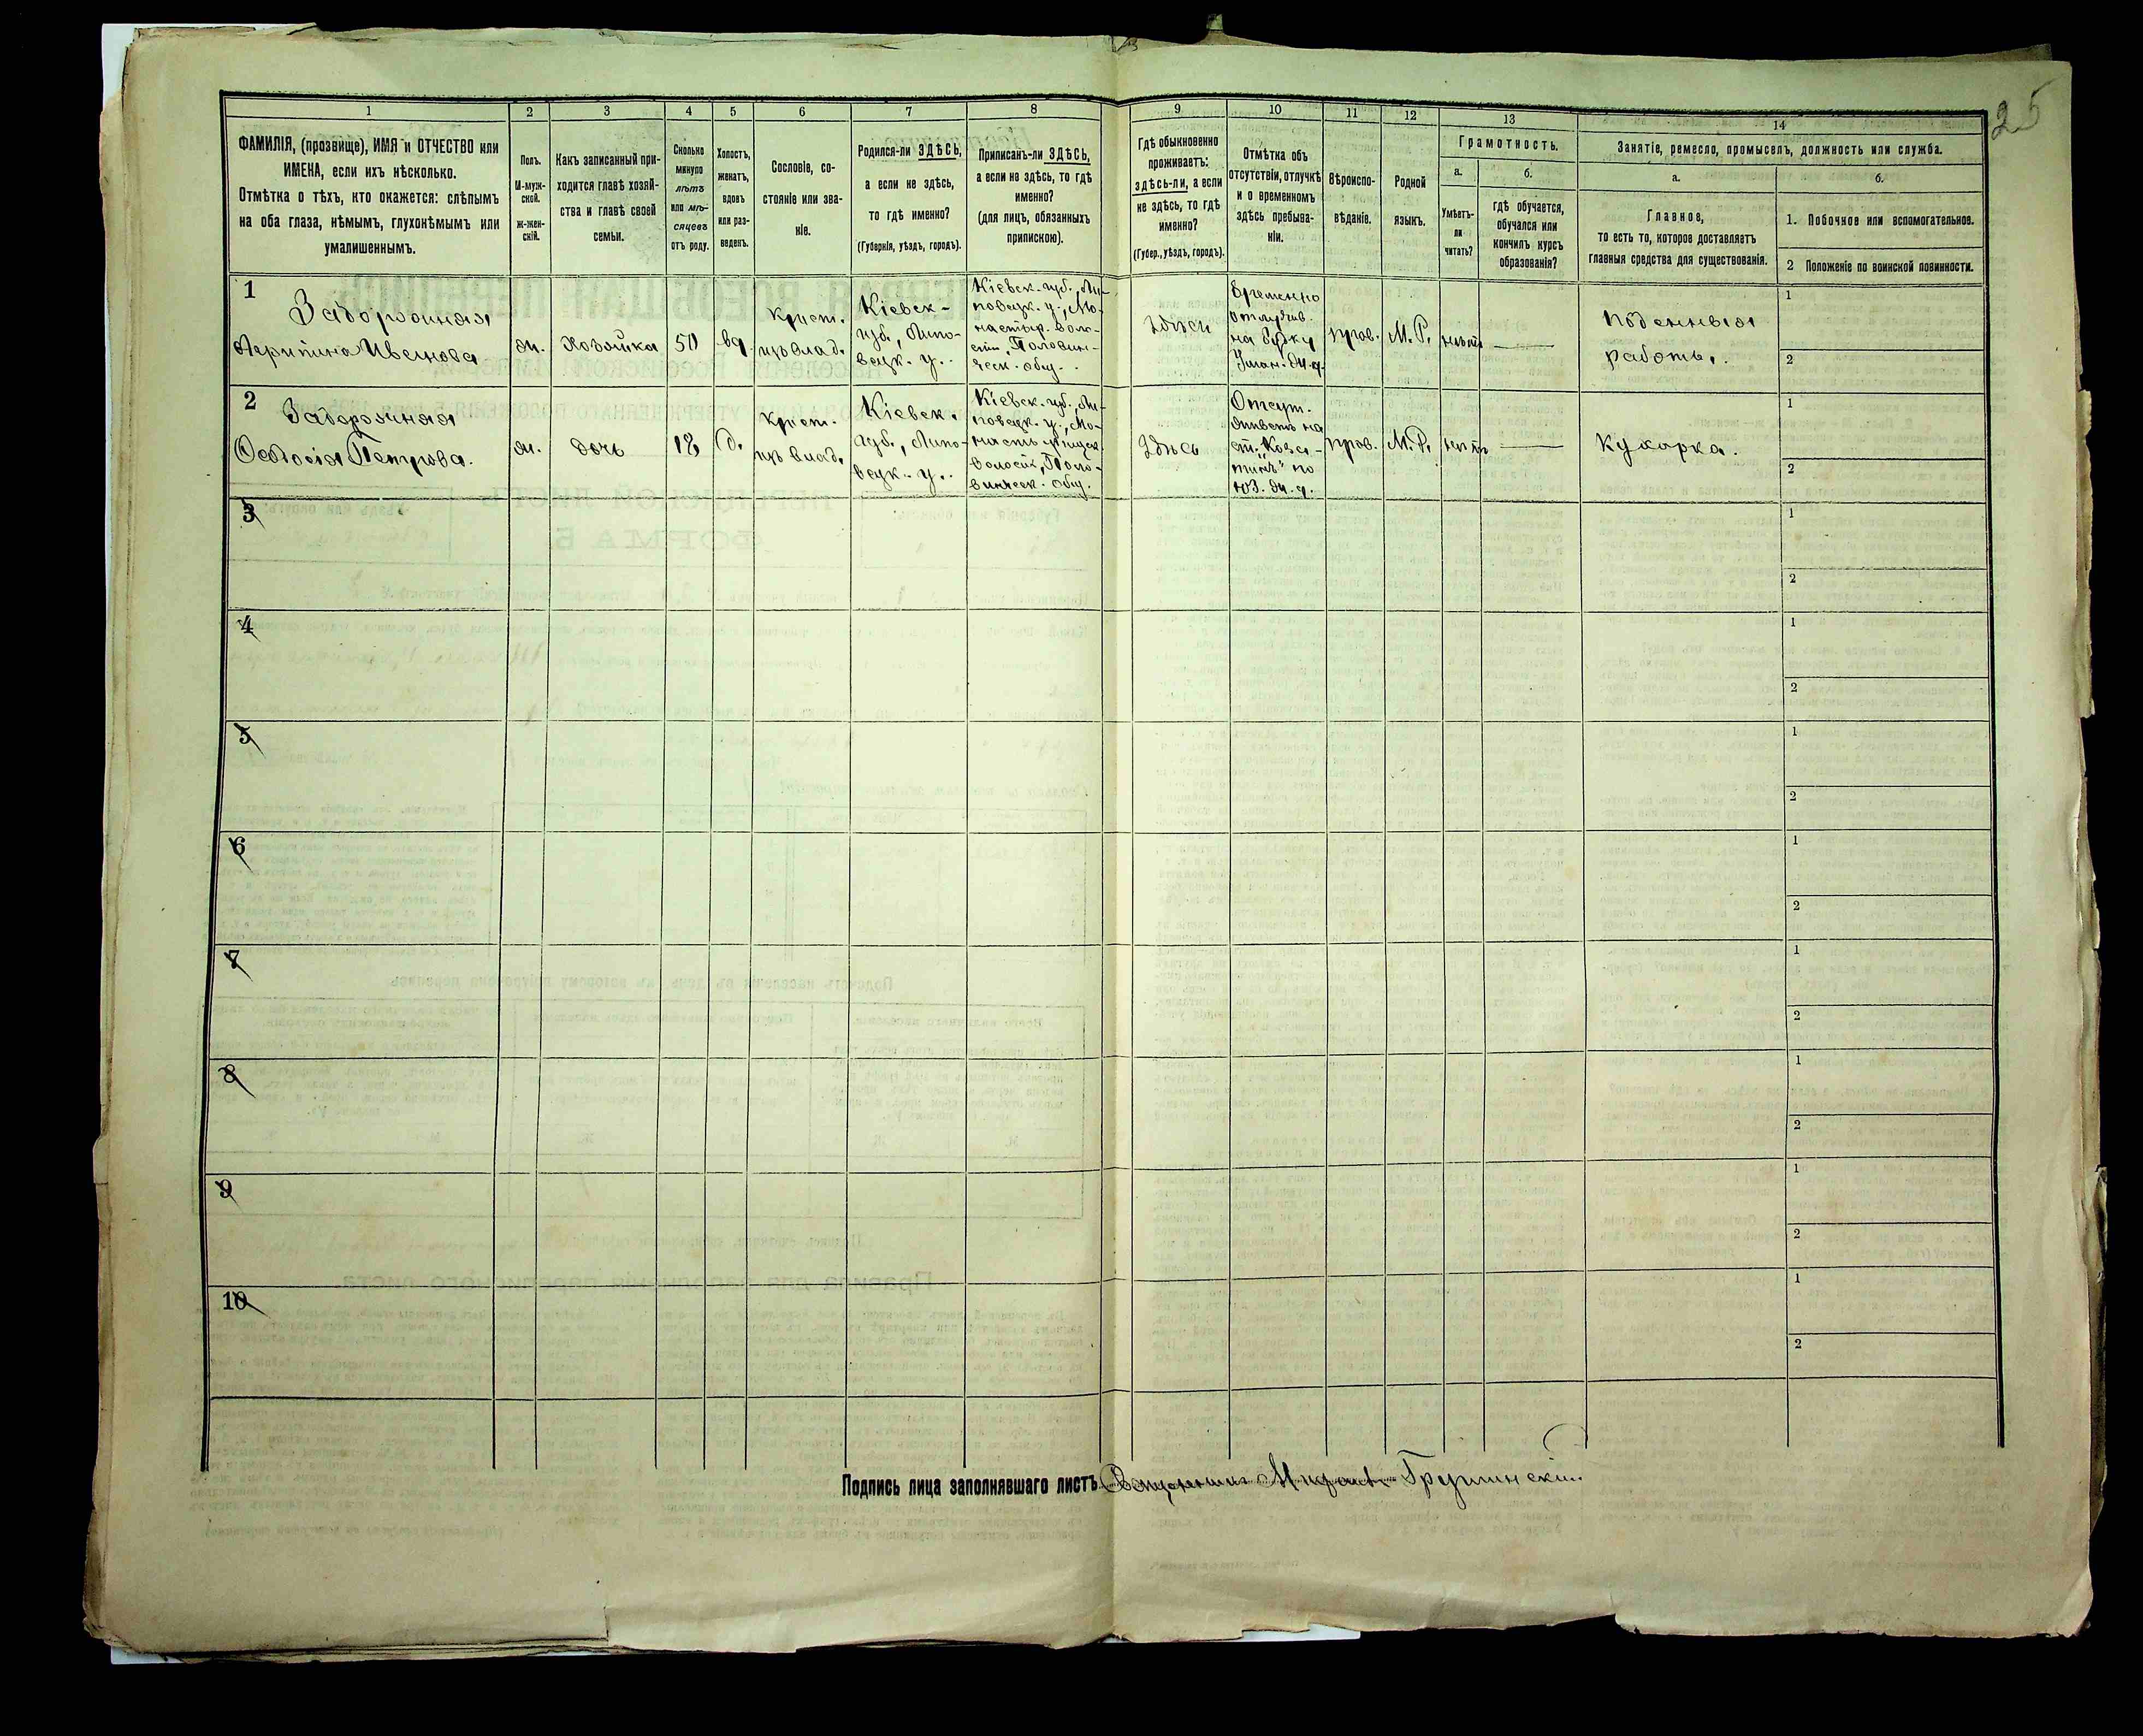 25
1
ФАМИЛІЯ, (прозвище), ИМЯ и ОТЧЕСТВО или
ИМЕНА, если ихъ нѣсколько.
Отмѣтка о тѣхъ, кто окажется: слѣпымъ
на оба глаза, нѣмымъ, глухонѣмымъ или
умалишеннымъ.
2
Полъ.
М-муж-
ской.
Ж-жен-
скій.
3
Какъ записанный при-
ходится главѣ хозяй-
ства и главѣ своей
семьи.
4
Сколько
минуло
лѣтъ
или мѣ-
сяцевъ
отъ роду.
5
Холостъ,
женатъ,
вдовъ
или раз-
веденъ.
6
Сословіе, со-
стояніе или зва-
ніе.
7
Родился-ли ЗДѢСЬ,
а если не здѣсь,
то гдѣ именно?
(Губернія, уѣздъ, городъ).
8
Приписанъ-ли ЗДѢСЬ,
а если не здѣсь, то гдѣ
именно?
(для лицъ, обязанныхъ
припискою).
9
Гдѣ обыкновенно
проживаетъ:
здѣсь-ли, а если
не здѣсь, то гдѣ
именно?
(Губер., уѣздъ, городъ).
10
Отмѣтка объ
отсутствіи, отлучкѣ
и о временномъ
здѣсь пребыва-
ніи.
11
Вѣроиспо-
вѣданіе.
12
Родной
языкъ.
13
Грамотность.
а.
Умѣетъ-
ли
читать?
б.
гдѣ обучается,
обучался или
кончилъ курсъ
образованія?
14
Занятіе, ремесло, промыселъ, должность или служба.
а.
Главное,
то есть то, которое доставляетъ
главныя средства для существованія.
б.
1. Побочное или вспомогательное.
2 Положеніе по воинской повинности.
1
Задорожная
Агрипина Иванова
ж.
Хозяйка
50
вд.
Крест.
изъ влад.
Кіевск-
губ., Липо-
вецк. у..
Кіевск. губ., Ли-
повецк. у., Мо-
настыр. воло-
сти, Половин-
ческ. общ.
Здѣсь
Временно
отлучив.
на будку
Уман. ж.д.
прав.
М.Р.
нѣтъ
Поденныя
работы.
1
2
2
Задорожная
Ѳедосія Петрова.
ж.
дочь
18
д.
Крест.
изъ влад.
Кіевск.
губ., Липо-
вецк. у..
Кіевск. губ., Ли-
повецк. у., Мо-
настырищск.
волости, Поло-
винческ. общ.
Здѣсь
Отсут-
ствуетъ на
ст. „Каза-
тинъ" по
ЮЗ. ж. д.
прав.
М.Р.
нѣтъ
Кухарка.
1
2
3
1
2
4
1
2
5
1
2
6
1
2
7
1
2
8
1
2
9
1
2
10
1
2
Подпись лица заполнявшаго листъ Грушинскій